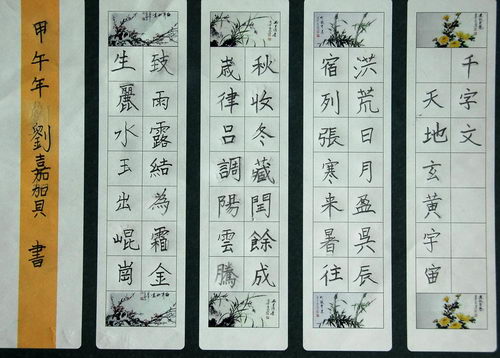 千字文
天地玄黃宇宙
洪荒日月盈吳辰
宿列張寒来暑往
秋收冬藏閏餘成
歳律呂調陽雲騰
致雨露結為霜金
生麗水玉出崐崗
甲午年劉嘉賀 書